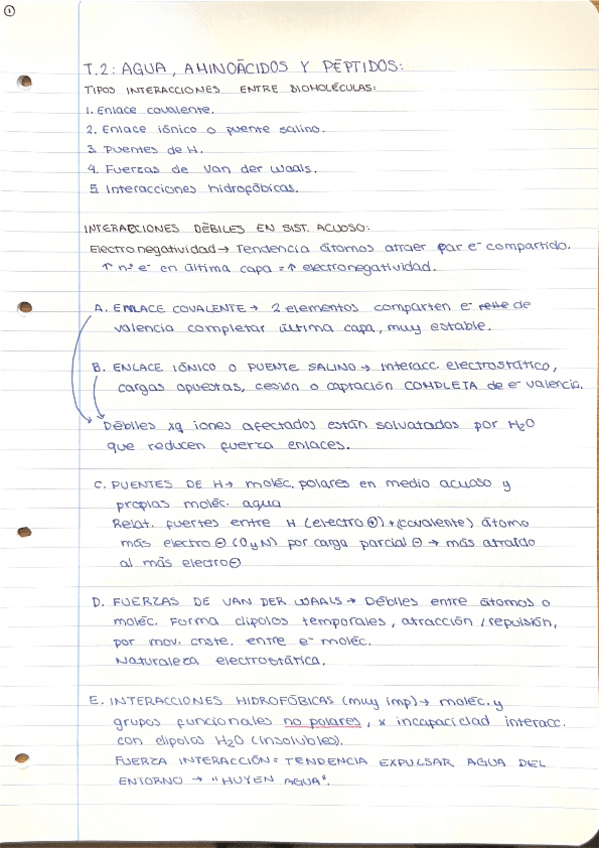 1
T.2: AGUA, AMINOÁCIDOS Y PÉPTIDOS:
TIPOS INTERACCIONES ENTRE BIOMOLÉCULAS:
1. Enlace covalente.
2. Enlace iónico o puente salino.
3. Puentes de H.
4. Fuerzas de Van der Waals.
5. Interacciones hidrofóbicas.
INTERACCIONES DÉBILES EN SIST. ACUOSO:
Electronegatividad → Tendencia átomos atraer par e⁻ compartido.
↑ nº e⁻ en última capa = ↑ electronegatividad.
A. ENLACE COVALENTE → 2 elementos comparten e⁻ de
valencia completar última capa, muy estable.
B. ENLACE IÓNICO O PUENTE SALINO → Interacc. electrostático,
cargas opuestas, cesión o captación COMPLETA de e⁻ valencia.
Débiles xq iones afectados están solvatados por H₂O
que reducen fuerza enlaces.
C. PUENTES DE H → moléc. polares en medio acuoso y
propias moléc. agua
Relat. fuertes entre H (electro ⊕) + (covalente) átomo
más electro ⊖ (O y N) por carga parcial ⊖ → más atraído
al más electro⊖
D. FUERZAS DE VAN DER WAALS → Débiles entre átomos o
moléc. Forma dipolos temporales, atracción / repulsión,
por mov. cnste. entre e⁻ moléc.
Naturaleza electrostática.
E. INTERACCIONES HIDROFÓBICAS (muy imp) → moléc. y
grupos funcionales no polares, x incapacidad interacc.
con dipolos H₂O (insolubles).
FUERZA INTERACCIÓN = TENDENCIA EXPULSAR AGUA DEL
ENTORNO → "HUYEN AGUA".